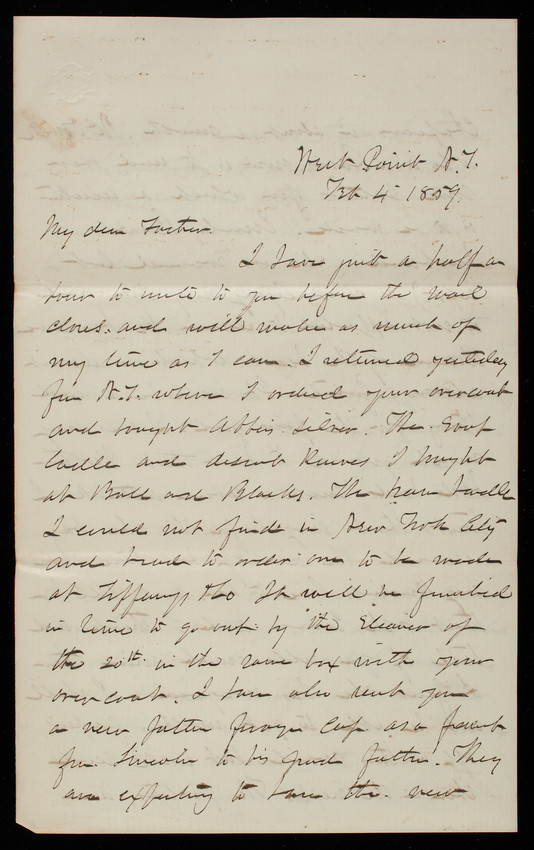 West Point N.Y.
Feb 4 1859.
My dear Father.
I have just a half an
hour to write to you before the mail
closes. and will make as much of
my time as I can. I returned yesterday
from N.Y. where I ordered your overcoat
and bought Abbis silver. The Soup
ladle and desert knives I bought
at Ball and Blacks. The ladle
I could not find in New York City
and had to order one to be made
at Tiffanys & Co It will be finished
in time to go out by the Steamer of
the 20th. in the same box with your
overcoat. I have also sent you
a new pattern forage cap as a present
from Lincoln to his grand father. They
are expecting to have the new